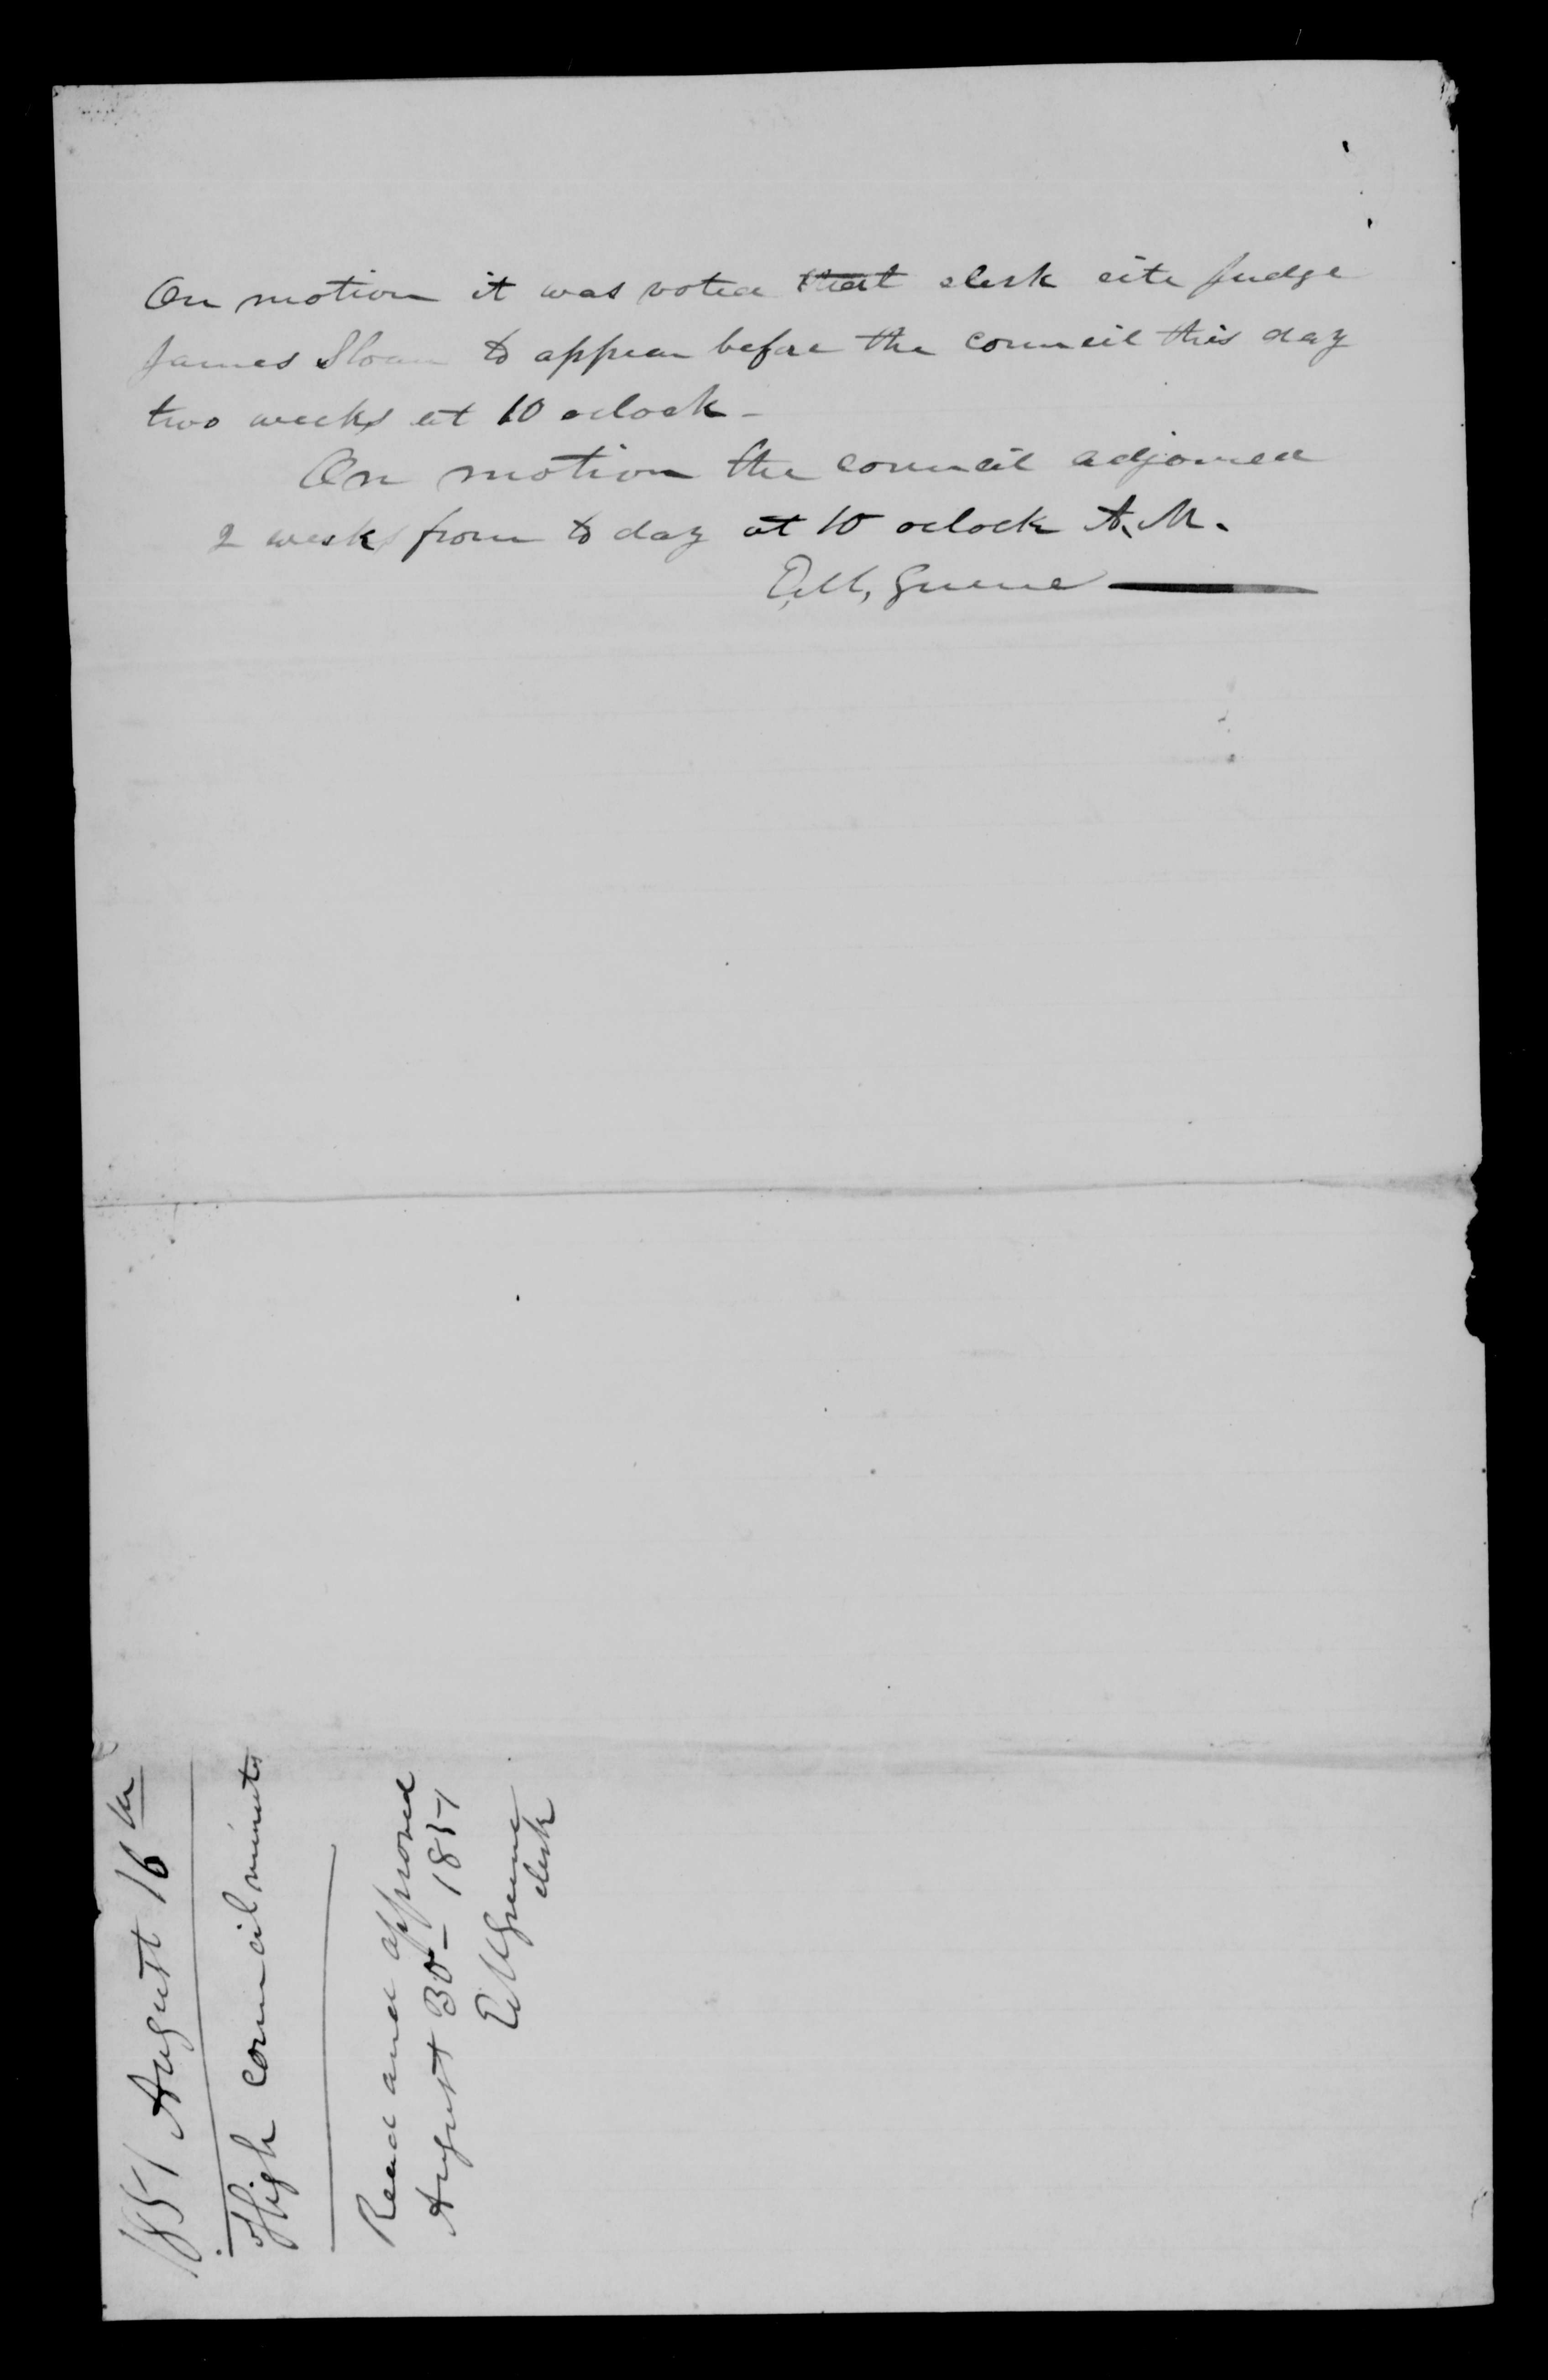 On motion it was voted that clerk cite Judge
James Sloan to appear before the council this day
two weeks at 10 oclock -
On motion the council adjourned
2 weeks from to day at 10 oclock A. M.
E. M. Greene
1851 August 16th
High council minutes
Read and approved
August 30 - 1851
E M Greene
clerk